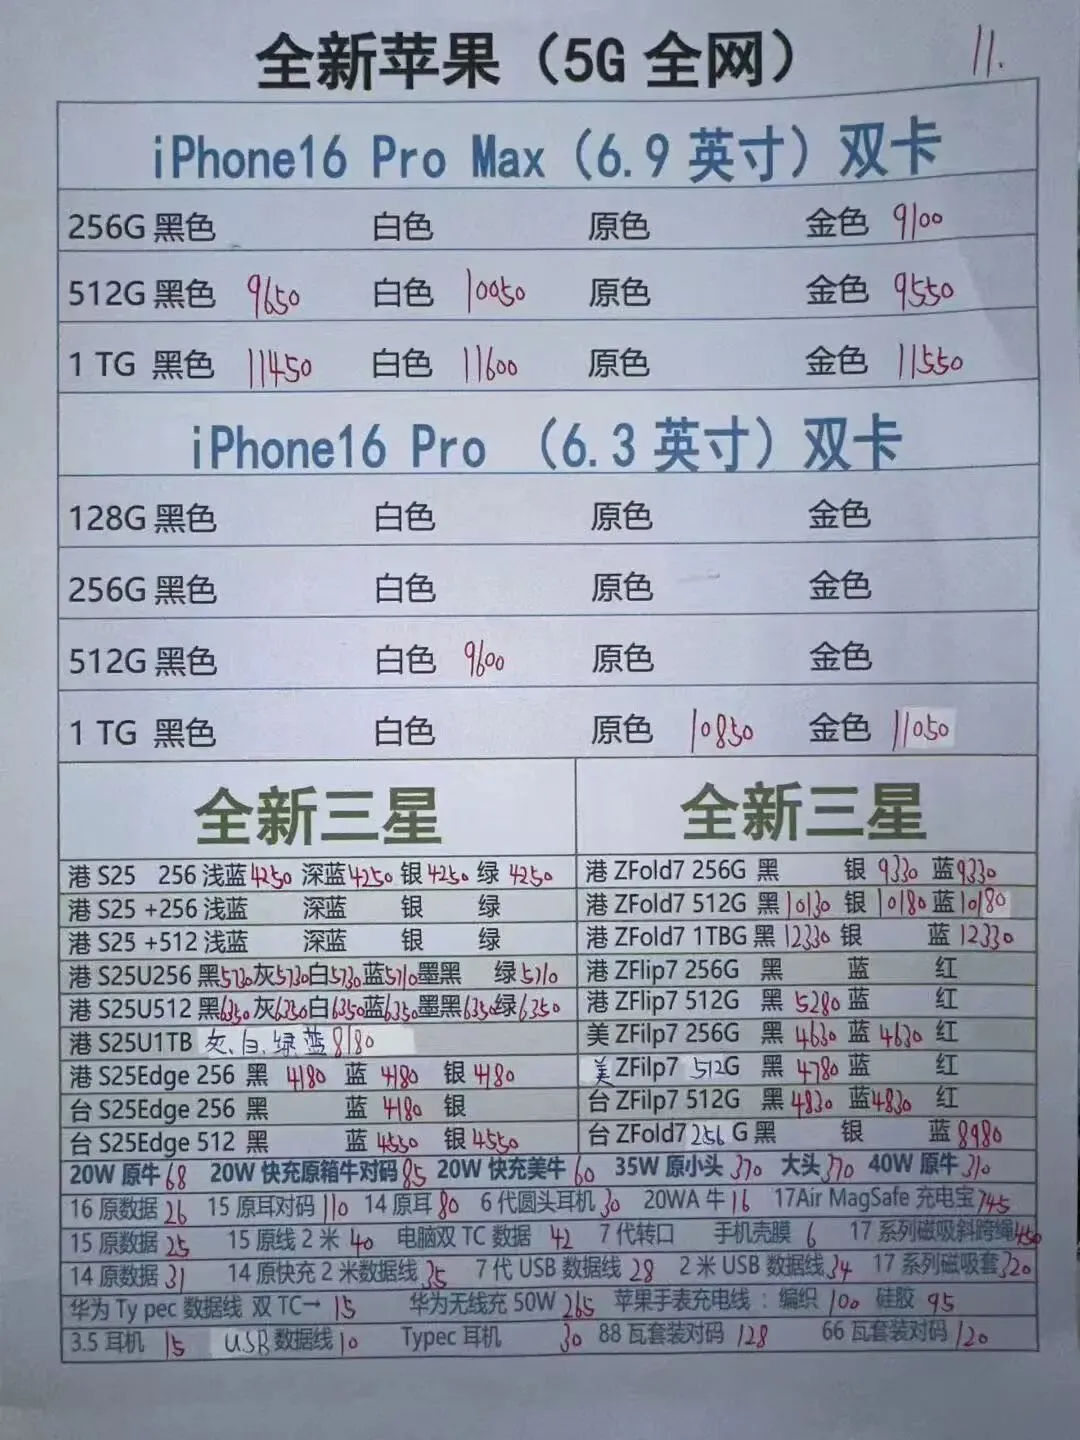 全新苹果（5G 全网） 11.
iPhone16 Pro Max（6.9 英寸）双卡
256G 黑色 白色 原色 金色 9100
512G 黑色 9650 白色 10050 原色 金色 9550
1 TG 黑色 11450 白色 11600 原色 金色 11550
iPhone16 Pro （6.3 英寸）双卡
128G 黑色 白色 原色 金色
256G 黑色 白色 原色 金色
512G 黑色 白色 9600 原色 金色
1 TG 黑色 白色 原色 10850 金色 11050
全新三星
港 S25 256 浅蓝 4250 深蓝 4250 银 4250 绿 4250
港 S25 +256 浅蓝 深蓝 银 绿
港 S25 +512 浅蓝 深蓝 银 绿
港 S25U256 黑5730灰5730白5730蓝5710墨黑 绿5710
港 S25U512 黑6350灰6350白6350蓝6350墨黑6350绿6350
港 S25U1TB 灰、白、绿 蓝 8180
港 S25Edge 256 黑 4180 蓝 4180 银 4180
台 S25Edge 256 黑 蓝 4180 银
台 S25Edge 512 黑 蓝 4550 银 4550
全新三星
港 ZFold7 256G 黑 银 9330 蓝 9330
港 ZFold7 512G 黑 10130 银 10180 蓝 10180
港 ZFold7 1TBG 黑 12330 银 蓝 12330
港 ZFlip7 256G 黑 蓝 红
港 ZFlip7 512G 黑 5280 蓝 红
美 ZFilp7 256G 黑 4630 蓝 4630 红
美 ZFilp7 512G 黑 4780 蓝 红
台 ZFilp7 512G 黑 4830 蓝 4830 红
台 ZFold7 256 G 黑 银 蓝 8980
20W 原牛 68 20W 快充原箱牛对码 85 20W 快充美牛 60 35W 原小头 370 大头 370 40W 原牛 310
16 原数据 26 15 原耳对码 110 14 原耳 80 6 代圆头耳机 30 20WA 牛 16 17Air MagSafe 充电宝 745
15 原数据 25 15 原线 2 米 40 电脑双 TC 数据 42 7 代转口 手机壳膜 6 17 系列磁吸斜跨绳 450
14 原数据 31 14 原快充 2 米数据线 35 7 代 USB 数据线 28 2 米 USB 数据线 34 17 系列磁吸套 320
华为 Ty pec 数据线 双 TC→ 15 华为无线充 50W 265 苹果手表充电线：编织 100 硅胶 95
3.5 耳机 15 USB 数据线 10 Typec 耳机 30 88 瓦套装对码 128 66 瓦套装对码 120